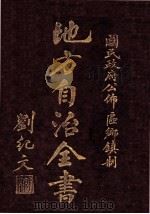 國民政府公佈區鄉鎮制
地方自治全書
劉紀文